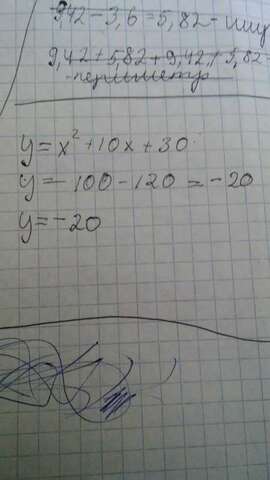 9,42 - 3,6 = 5,82 -
9,42 + 5,82 + 9,42 + 5,82
- периметр
y = x² + 10x + 30
y = 100 - 120 = -20
y = -20